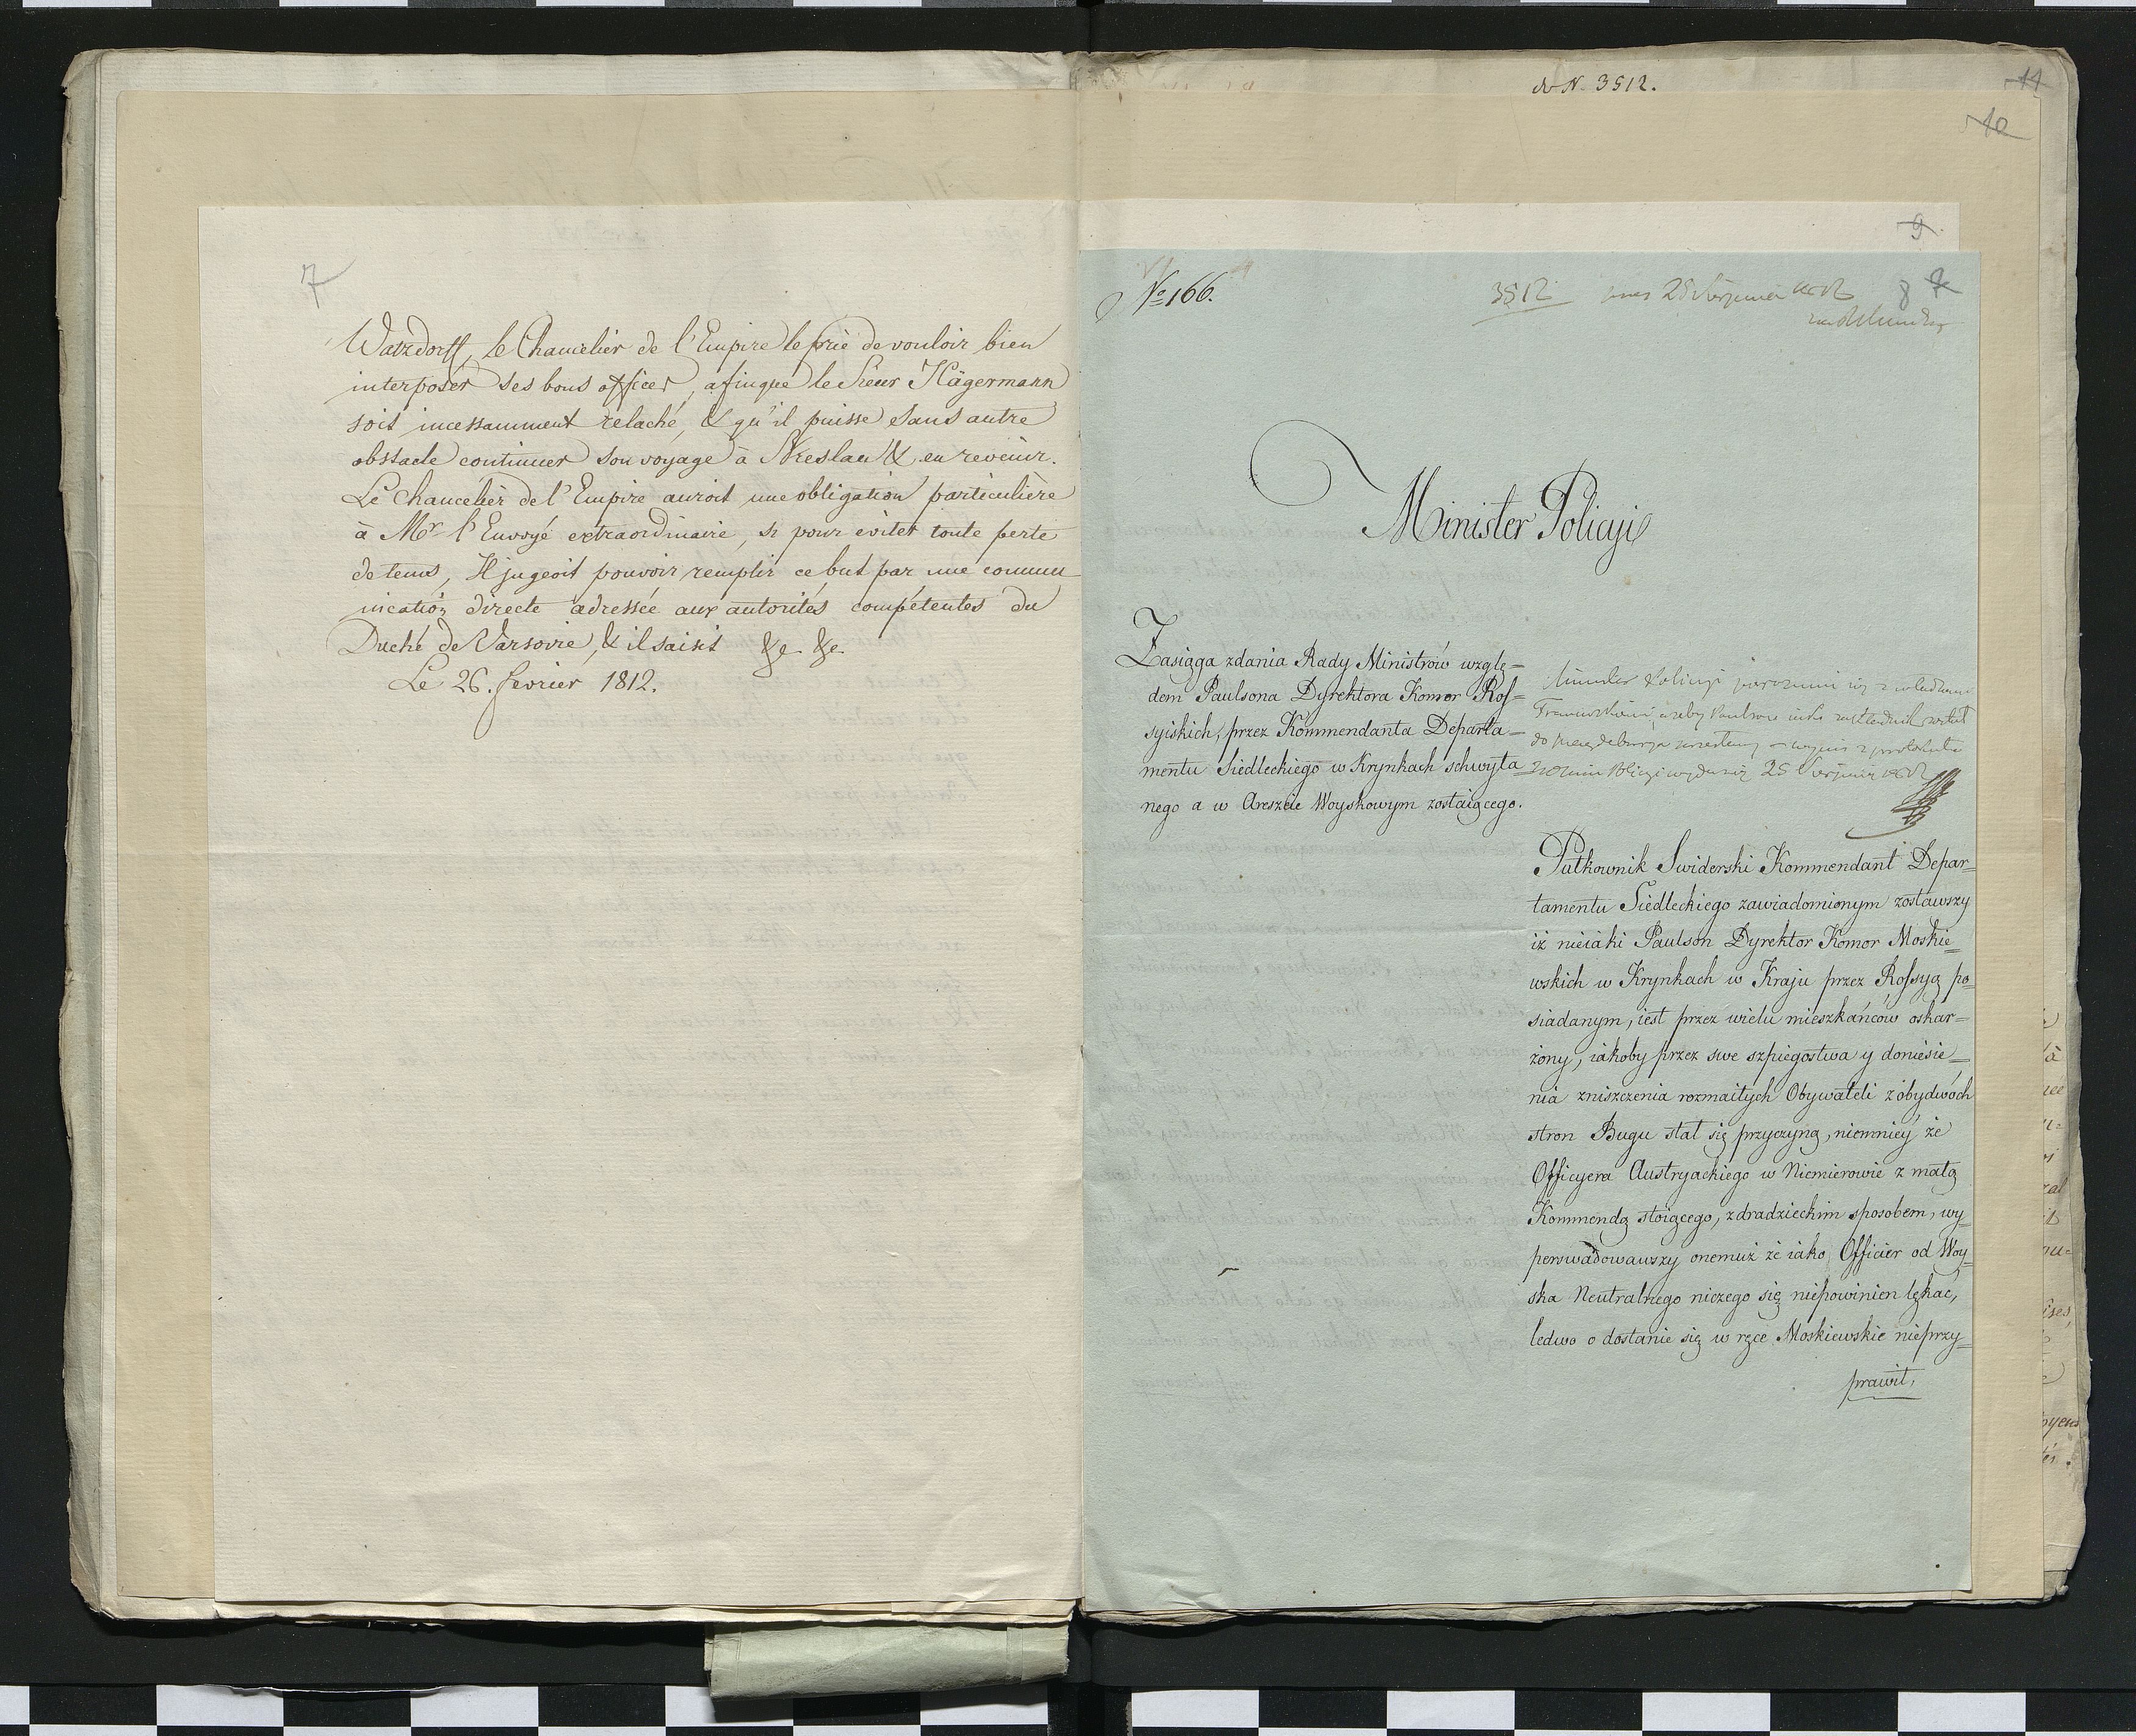 7
Watzdorff, le Chancelier de l'Empire le prie de vouloir bien
interposer ses bons offices, afinque le Sieur Hägermann
soit incessamment relaché, & qu'il puisse sans autre
obstacle continuer son voyage à Breslau & en revenir.
Le Chancelier de l'Empire auroit une obligation particulière
à Mr l'Envoyé extraordinaire, si pour eviter toute perte
de tems, Il jugeoit pouvoir remplir ce but par une commu
nication directe adressée aux autorités compétentes du
Duché de Varsovie, & il saisit &c &c
Le 26. fevrier 1812.
do N. 3512.
11
10
9
No 166.
3512
8
7
Minister Policyi
Zasiąga zdania Rady Ministrów wzglę=
dem Paulsona Dyrektora Komor Ros=
syiskich, przez Kommendanta Departa=
mentu Siedleckiego w Krynkach schwyta=
nego a w Areszcie Woyskowym zostaiącego.
Minister Policyi porozumi się z władzami
Francuskimi, ażeby Paulson iako zakładnik został
do Magdeburga
25 Sierpnia 1812
Pułkownik Swiderski Kommendant Depar=
tamentu Siedleckiego zawiadomionym zostawszy
iż nieiaki Paulson Dyrektor Komor Moskie=
wskich w Krynkach w Kraju przez Rossyą po=
siadanym, iest przez wielu mieszkańców oskar=
żony, iakoby przez swe szpiegostwa y doniesie=
nia zniszczenia rozmaitych Obywateli z obydwóch
stron Bugu stał się przyczyną, niemniey że
Officyera Austryackiego w Niemierowie z małą
Kommendą stoiącego, zdradzieckim sposobem, wy=
perswadowawszy onemuż że iako Officier od Woy=
ska Neutralnego niczego się niepowinien lękać,
ledwo o dostanie się w ręce Moskiewskie nieprzy=
prawił,